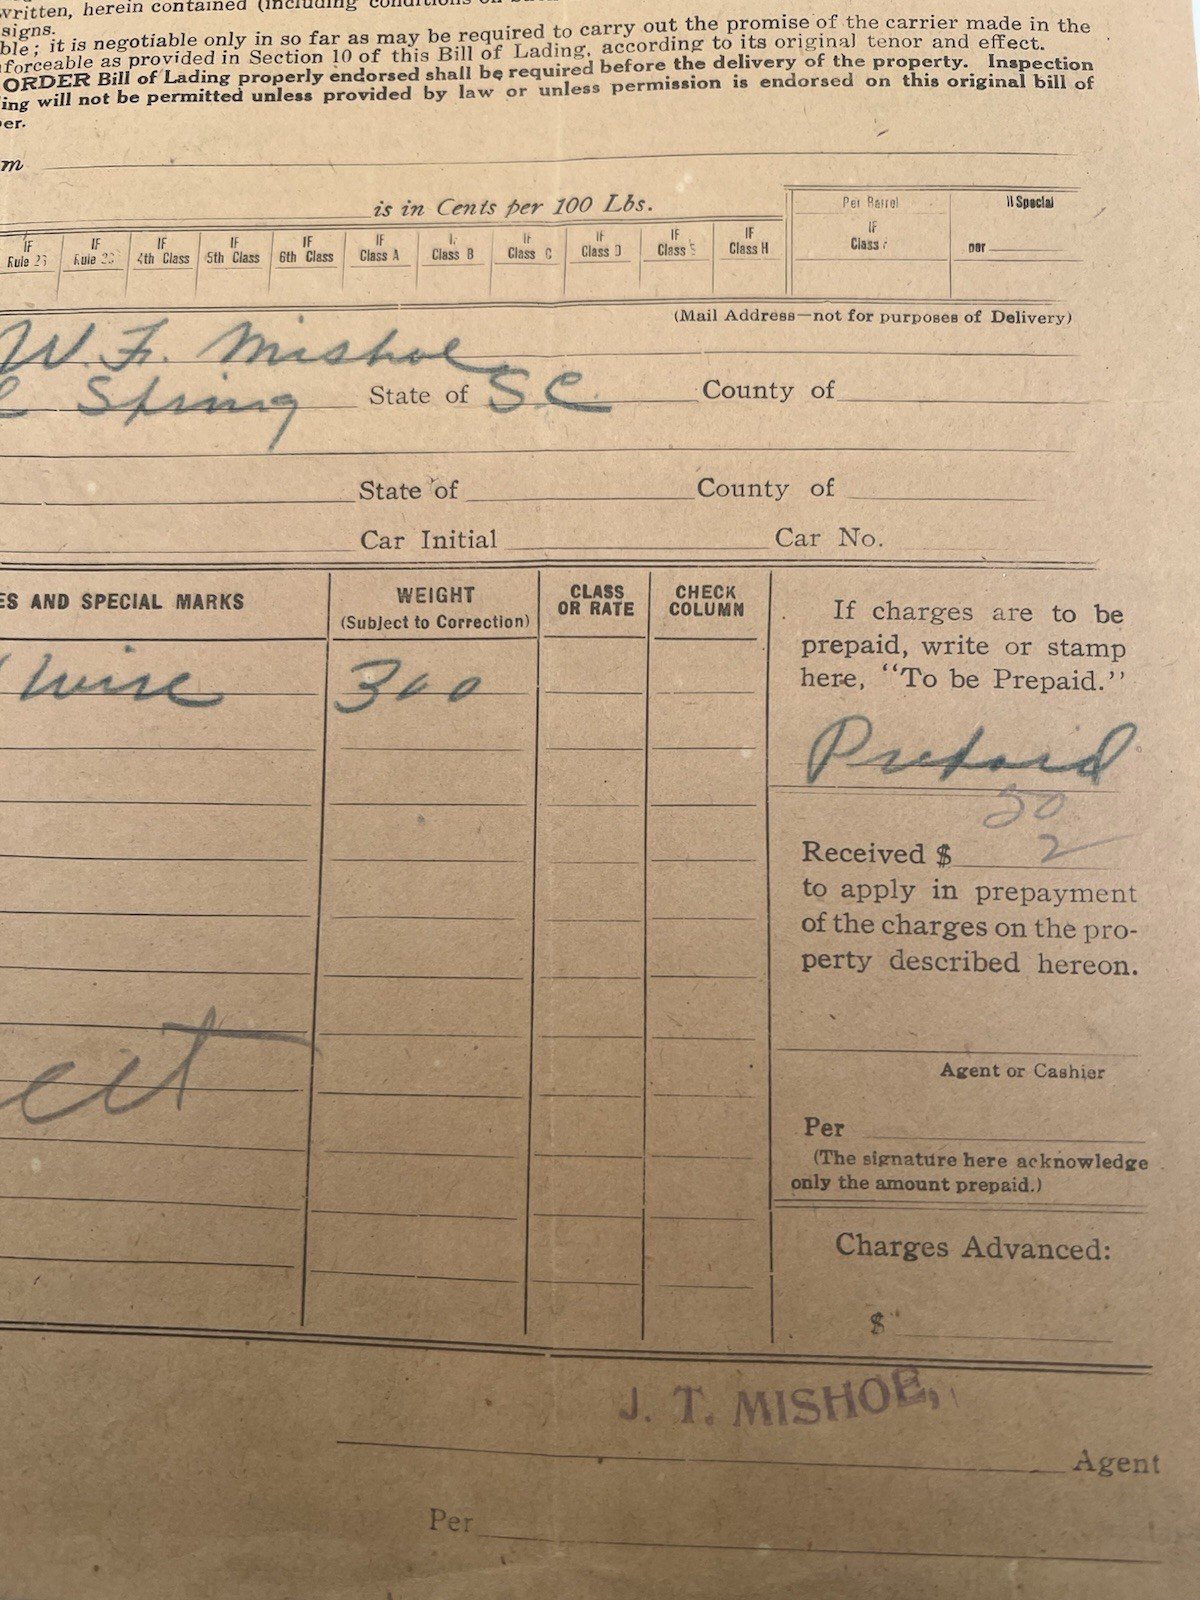 written, herein contained (including conditions on
signs.
ble; it is negotiable only in so far as may be required to carry out the promise of the carrier made in the
forceable as provided in Section 10 of this Bill of Lading, according to its original tenor and effect.
ORDER Bill of Lading properly endorsed shall be required before the delivery of the property. Inspection
ing will not be permitted unless provided by law or unless permission is endorsed on this original bill of
per.
m
is in Cents per 100 Lbs.
IF Rule 25 IF Rule 26 IF 4th Class IF 5th Class IF 6th Class IF Class A IF Class B IF Class C IF Class D IF Class E IF Class H Per Barrel IF Class If Special per
(Mail Address—not for purposes of Delivery)
W. F. Mishoe
Spring State of S.C. County of
State of County of
Car Initial Car No.
ES AND SPECIAL MARKS
WEIGHT
(Subject to Correction)
CLASS
OR RATE
CHECK
COLUMN
wire 300
If charges are to be
prepaid, write or stamp
here, “To be Prepaid.”
Prepaid
50
Received $ 2
to apply in prepayment
of the charges on the pro-
perty described hereon.
Agent or Cashier
Per
(The signature here acknowledge
only the amount prepaid.)
Charges Advanced:
$
J. T. MISHOE,
Agent
Per